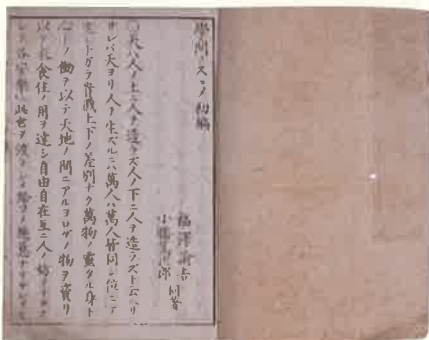 學問ノスヽメ 初編
福澤諭吉
小幡篤次郎 同著
天ハ人ノ上ニ人ヲ造ラズ人ノ下ニ人ヲ造ラズト云ヘリ
サレバ天ヨリ人ヲ生ズルニハ萬人ハ萬人皆同ジ位ニシテ
生レナガラ貴賤上下ノ差別ナク萬物ノ靈タル身ト
心トノ働ヲ以テ天地ノ間ニアルヨロヅノ物ヲ資リ
以テ衣食住ノ用ヲ達シ自由自在互ニ人ノ妨ヲナサズ
シテ各安樂ニ此世ヲ渡ラシメ給フノ趣意ナリ